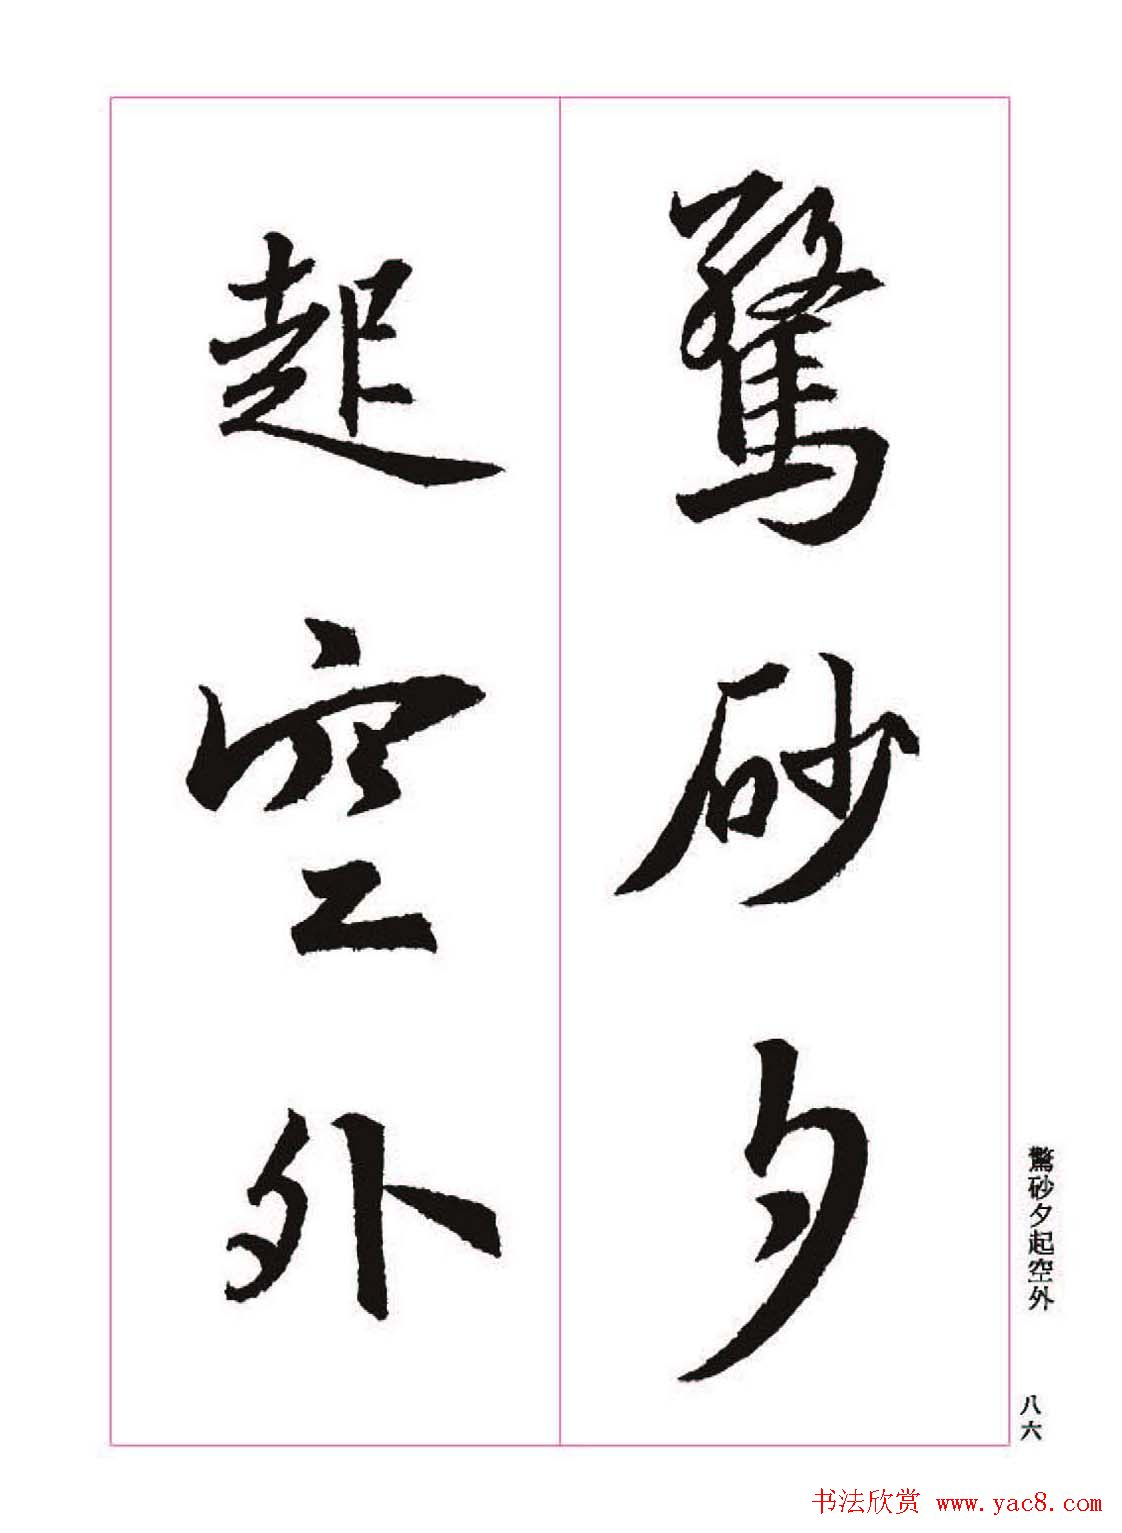 驚砂夕
起空外
驚砂夕起空外
八六
书法欣赏 www.yac8.com